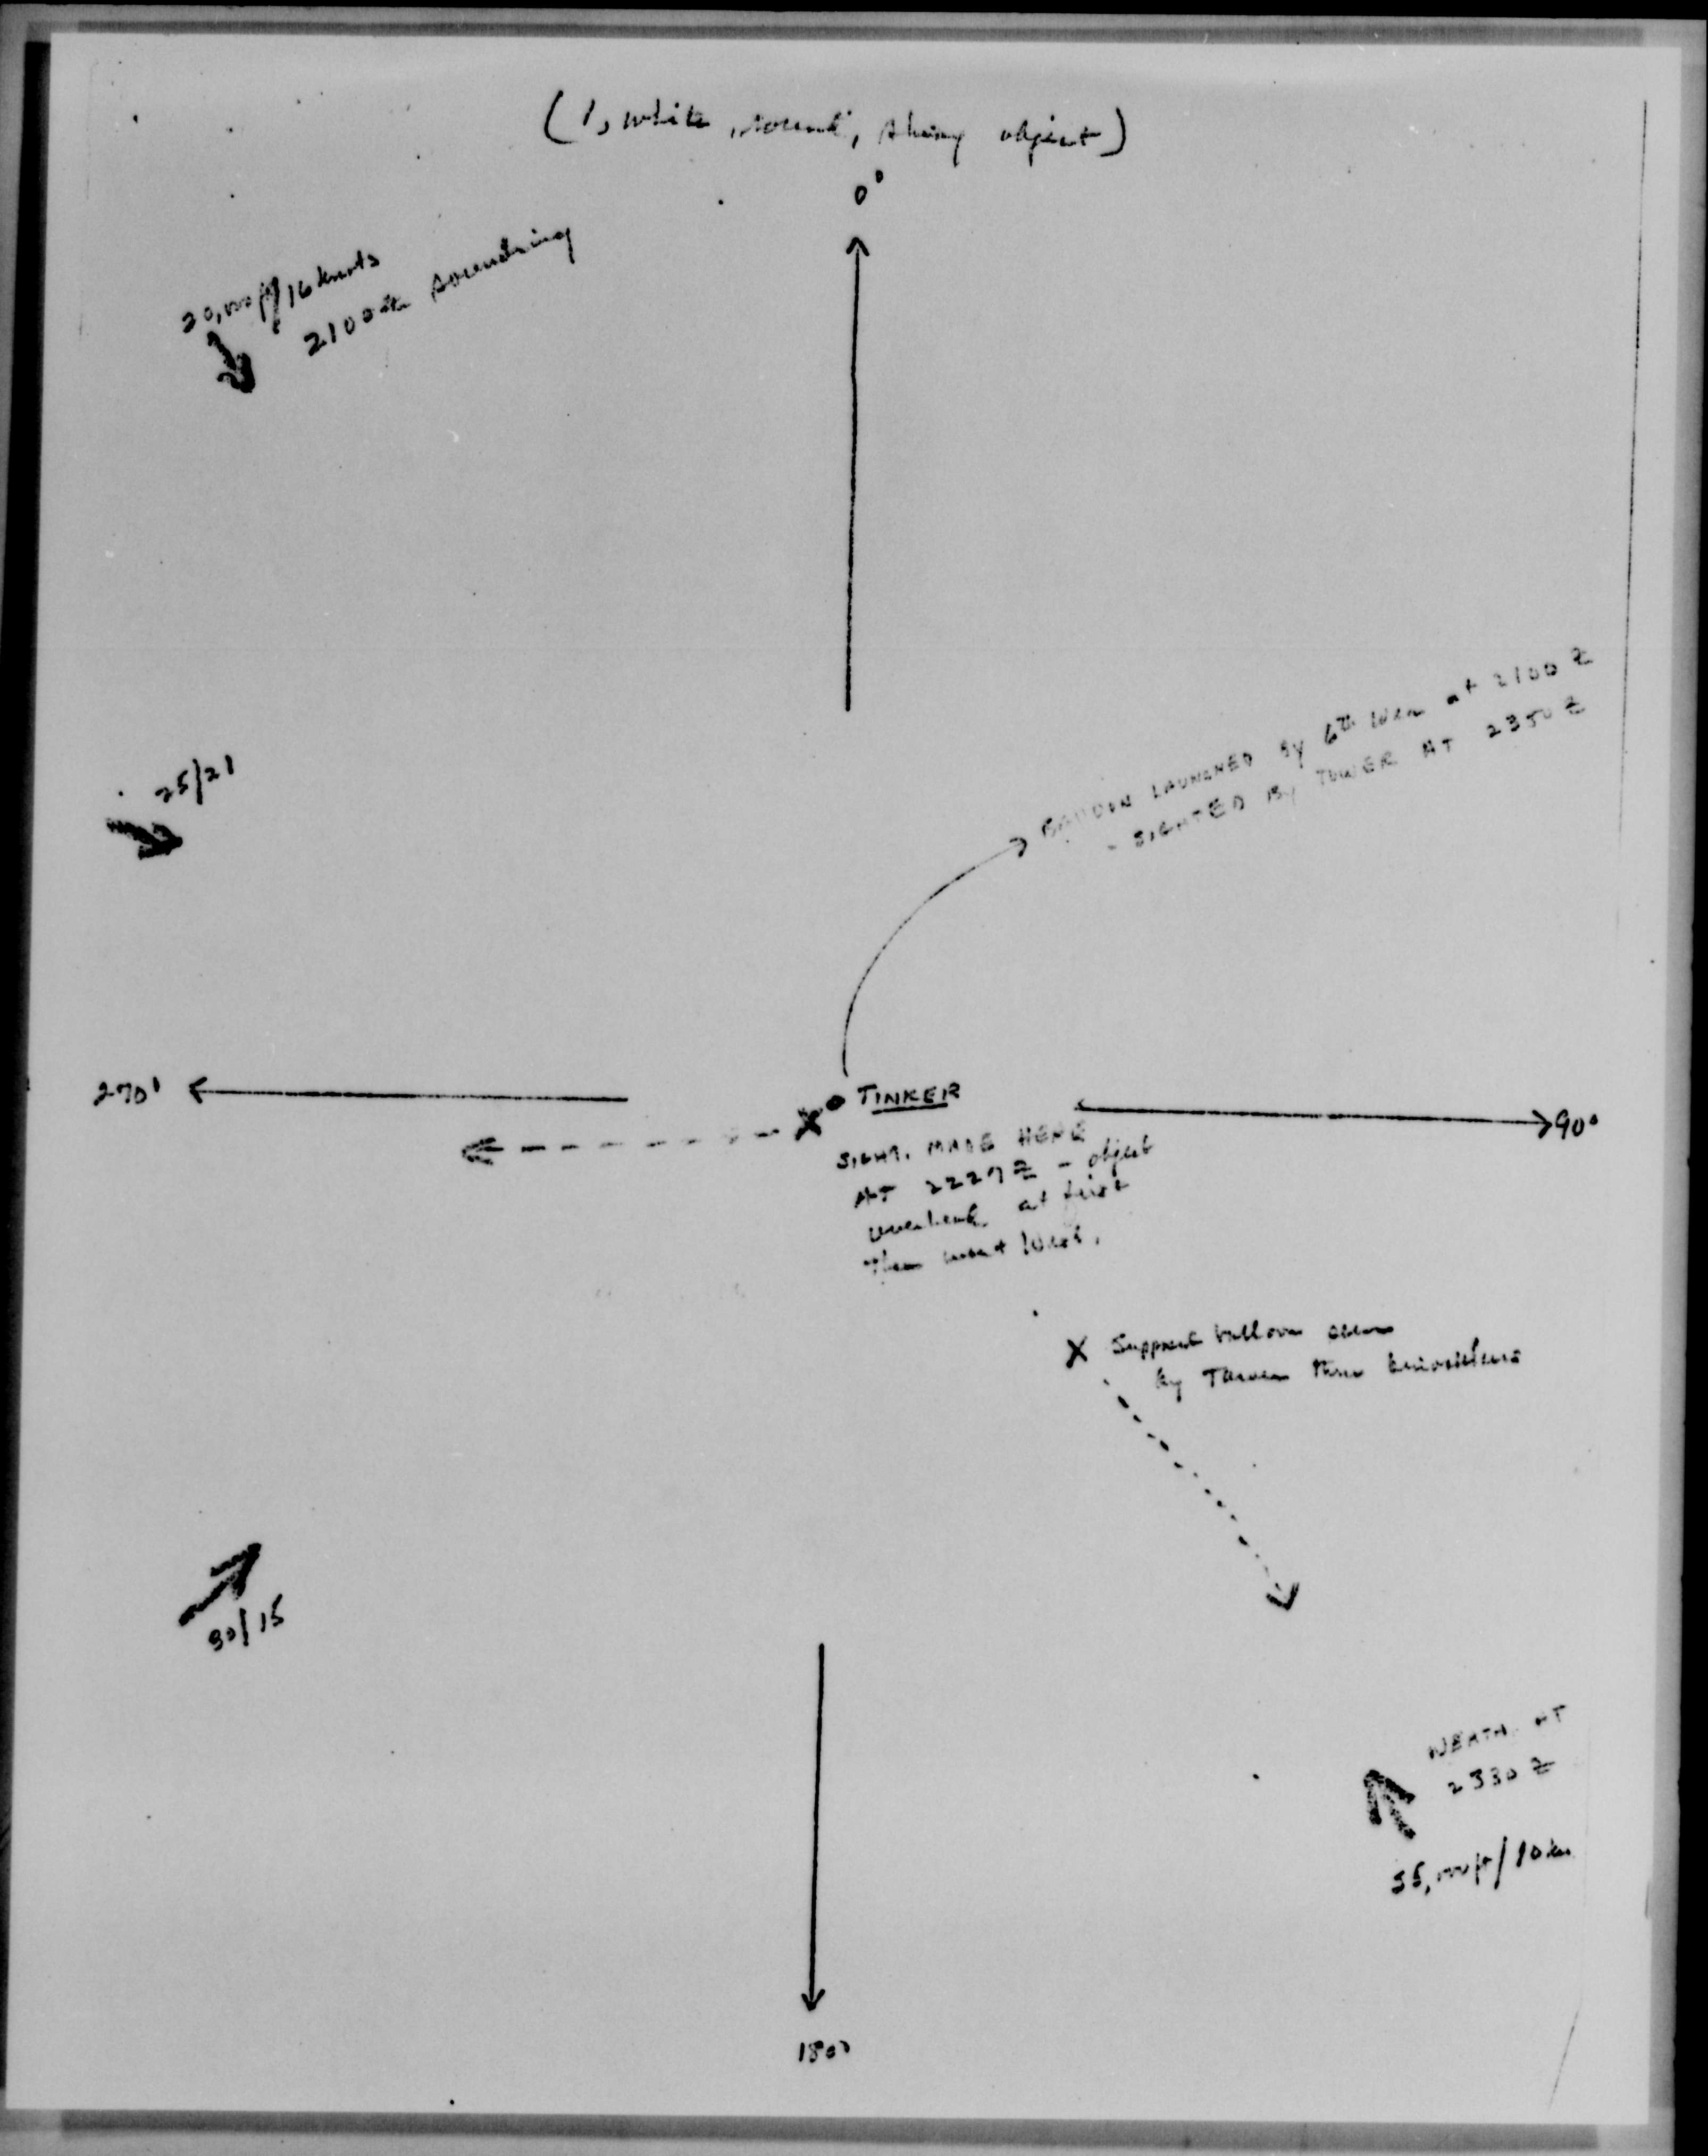 (1, white, round, shiny object)
0°
20,000 ft/16 knots
2100Z sounding
25/21
BALLOON LAUNCHED BY 6th Wea at 2100 Z
- SIGHTED BY TOWER AT 2350 Z
270°
TINKER
90°
SIGHT. MADE HERE
AT 2227 Z - object
overhead at first
then went West.
X Supposed balloon seen
by Tower thru binoculars
30/15
WEATH. AT
2330 Z
55,000 ft/10 kn
180°